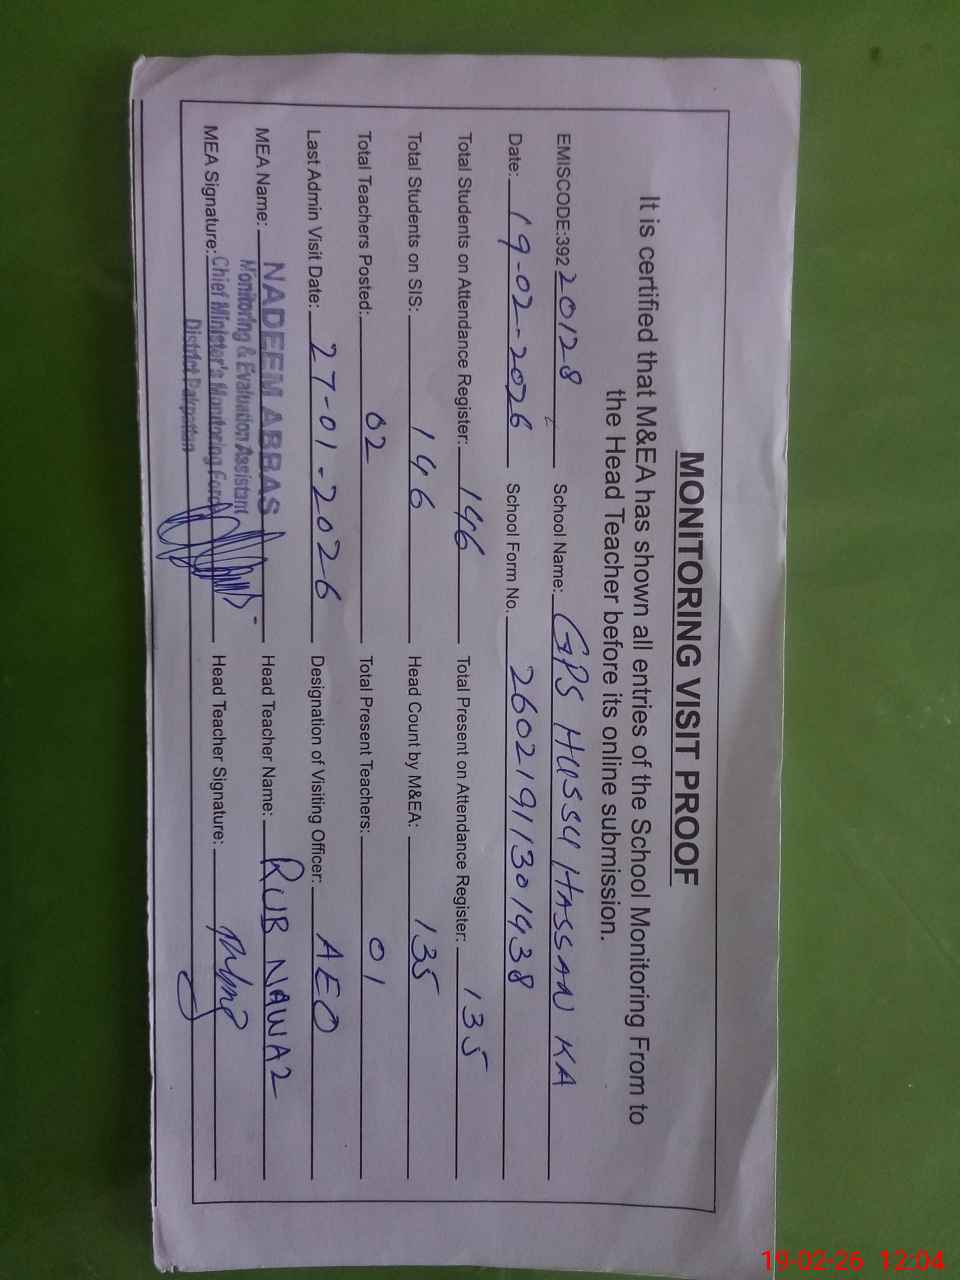 MONITORING VISIT PROOF
It is certified that M&EA has shown all entries of the School Monitoring From to
the Head Teacher before its online submission.
EMISCODE:39220128 School Name: GPS HUSSU HASSAN KA
Date: 19-02-2026 School Form No. 26021911301938
Total Students on Attendance Register: 146 Total Present on Attendance Register: 135
Total Students on SIS: 146 Head Count by M&EA: 135
Total Teachers Posted: 02 Total Present Teachers: 01
Last Admin Visit Date: 27-01-2026 Designation of Visiting Officer: AEO
MEA Name: NADEEM ABBAS Head Teacher Name: RUB NAWAZ
Monitoring & Evaluation Assistant
MEA Signature: Chief Minister's Monitoring Force Head Teacher Signature:
District Pakpattan
19-02-26 12:04